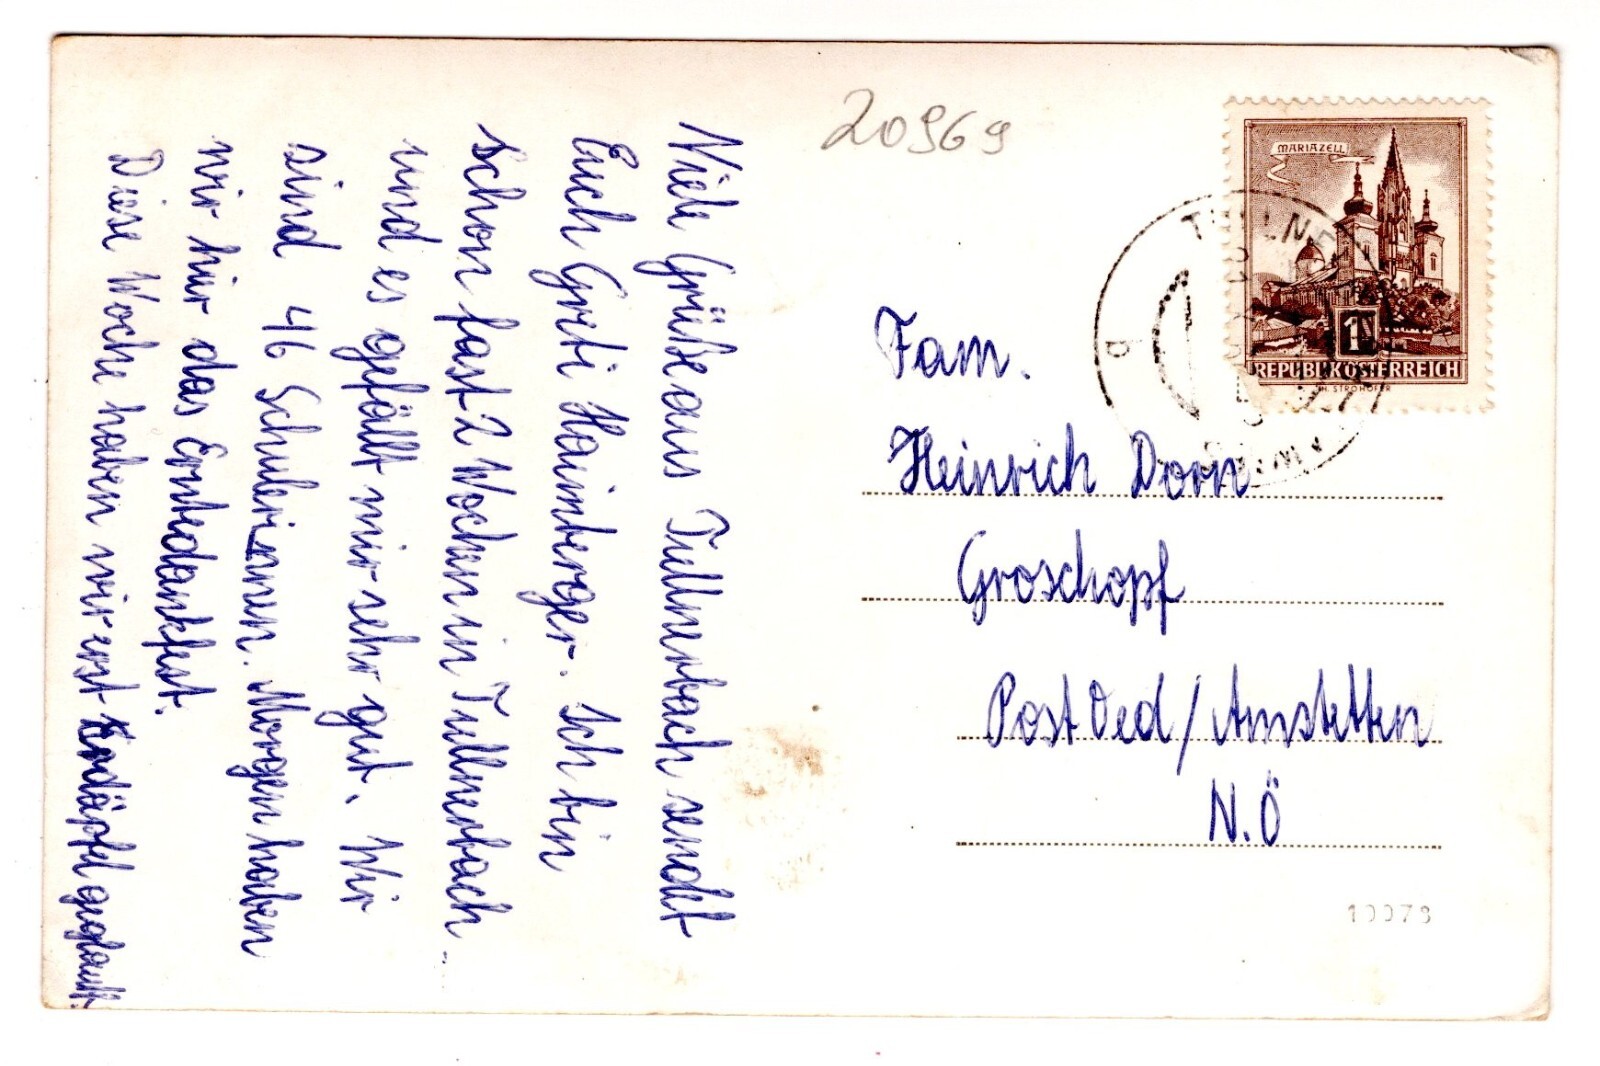 Viele Grüße aus Tullnerbach sendet
Euch Greti Haimberger. Ich bin
schon fast 2 Wochen in Tullnerbach
und es gefällt mir sehr gut. Wir
sind 46 Schülerinnen. Morgen haben
wir hier das Erntedankfest.
Diese Woche haben wir erst Erdäpfel geglaubt.
20969
MARIAZELL
1
REPUBLIK ÖSTERREICH
H. STROHOFER
Fam.
Heinrich Dorn
Groschopf
Post Oed/Amstetten
N.Ö